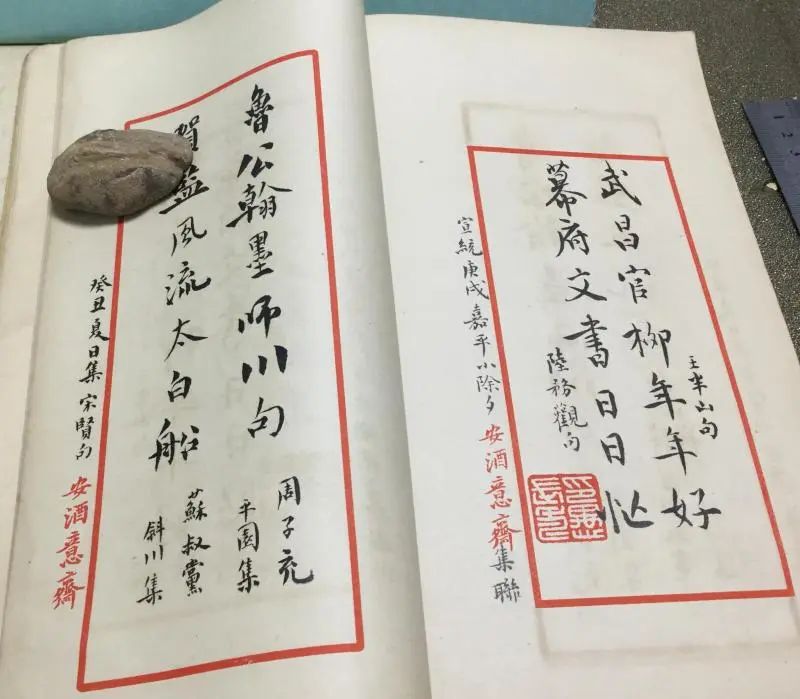 武昌官柳年年好
王半山句
幕府文書日日忙
陸務觀句
宣統庚戌嘉平小除夕
安酒意齋集聯
魯公翰墨師川句
周子充
平園集
賀監風流太白船
蘇叔黨
斜川集
癸丑夏日集宋賢句
安酒意齋